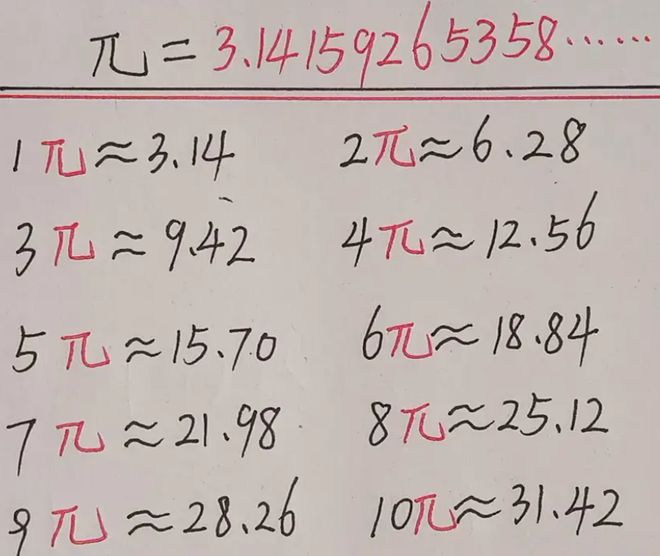 π = 3.14159265358……
1π≈3.14 2π≈6.28
3π≈9.42 4π≈12.56
5π≈15.70 6π≈18.84
7π≈21.98 8π≈25.12
9π≈28.26 10π≈31.42